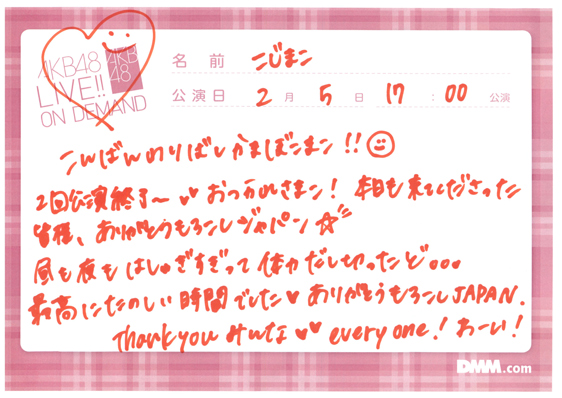 AKB48
LIVE!!
ON DEMAND
AKB
48
名前 こじまこ
公演日 2月5日 17:00公演
こんばんのりばしかまぼこまこ!!
2回公演終了〜♥♥おつかれさまこ! 本日も来てくださった
皆様、ありがとうもろこしジャパン☆
昼も夜もはしゃぎすぎって体力だし切ったど...
最高にたのしい時間でした♥ありがとうもろこしJAPAN.
Thank you みんな♥♥ every one! わーい!
DMM.com